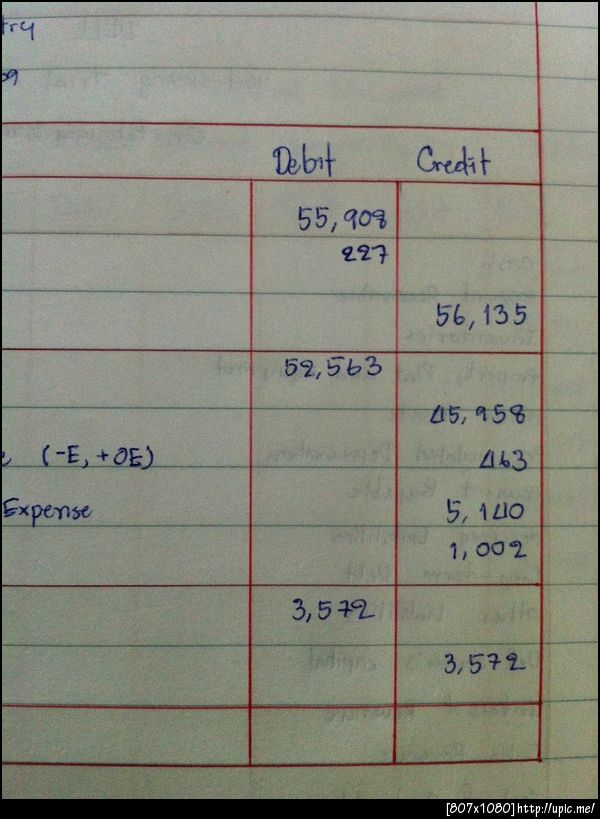 try
09
Debit Credit
55,908
227
56,135
52,563
45,958
(-E, +OE) 463
Expense 5,140
1,002
3,572
3,572
[807x1080] http://upic.me/